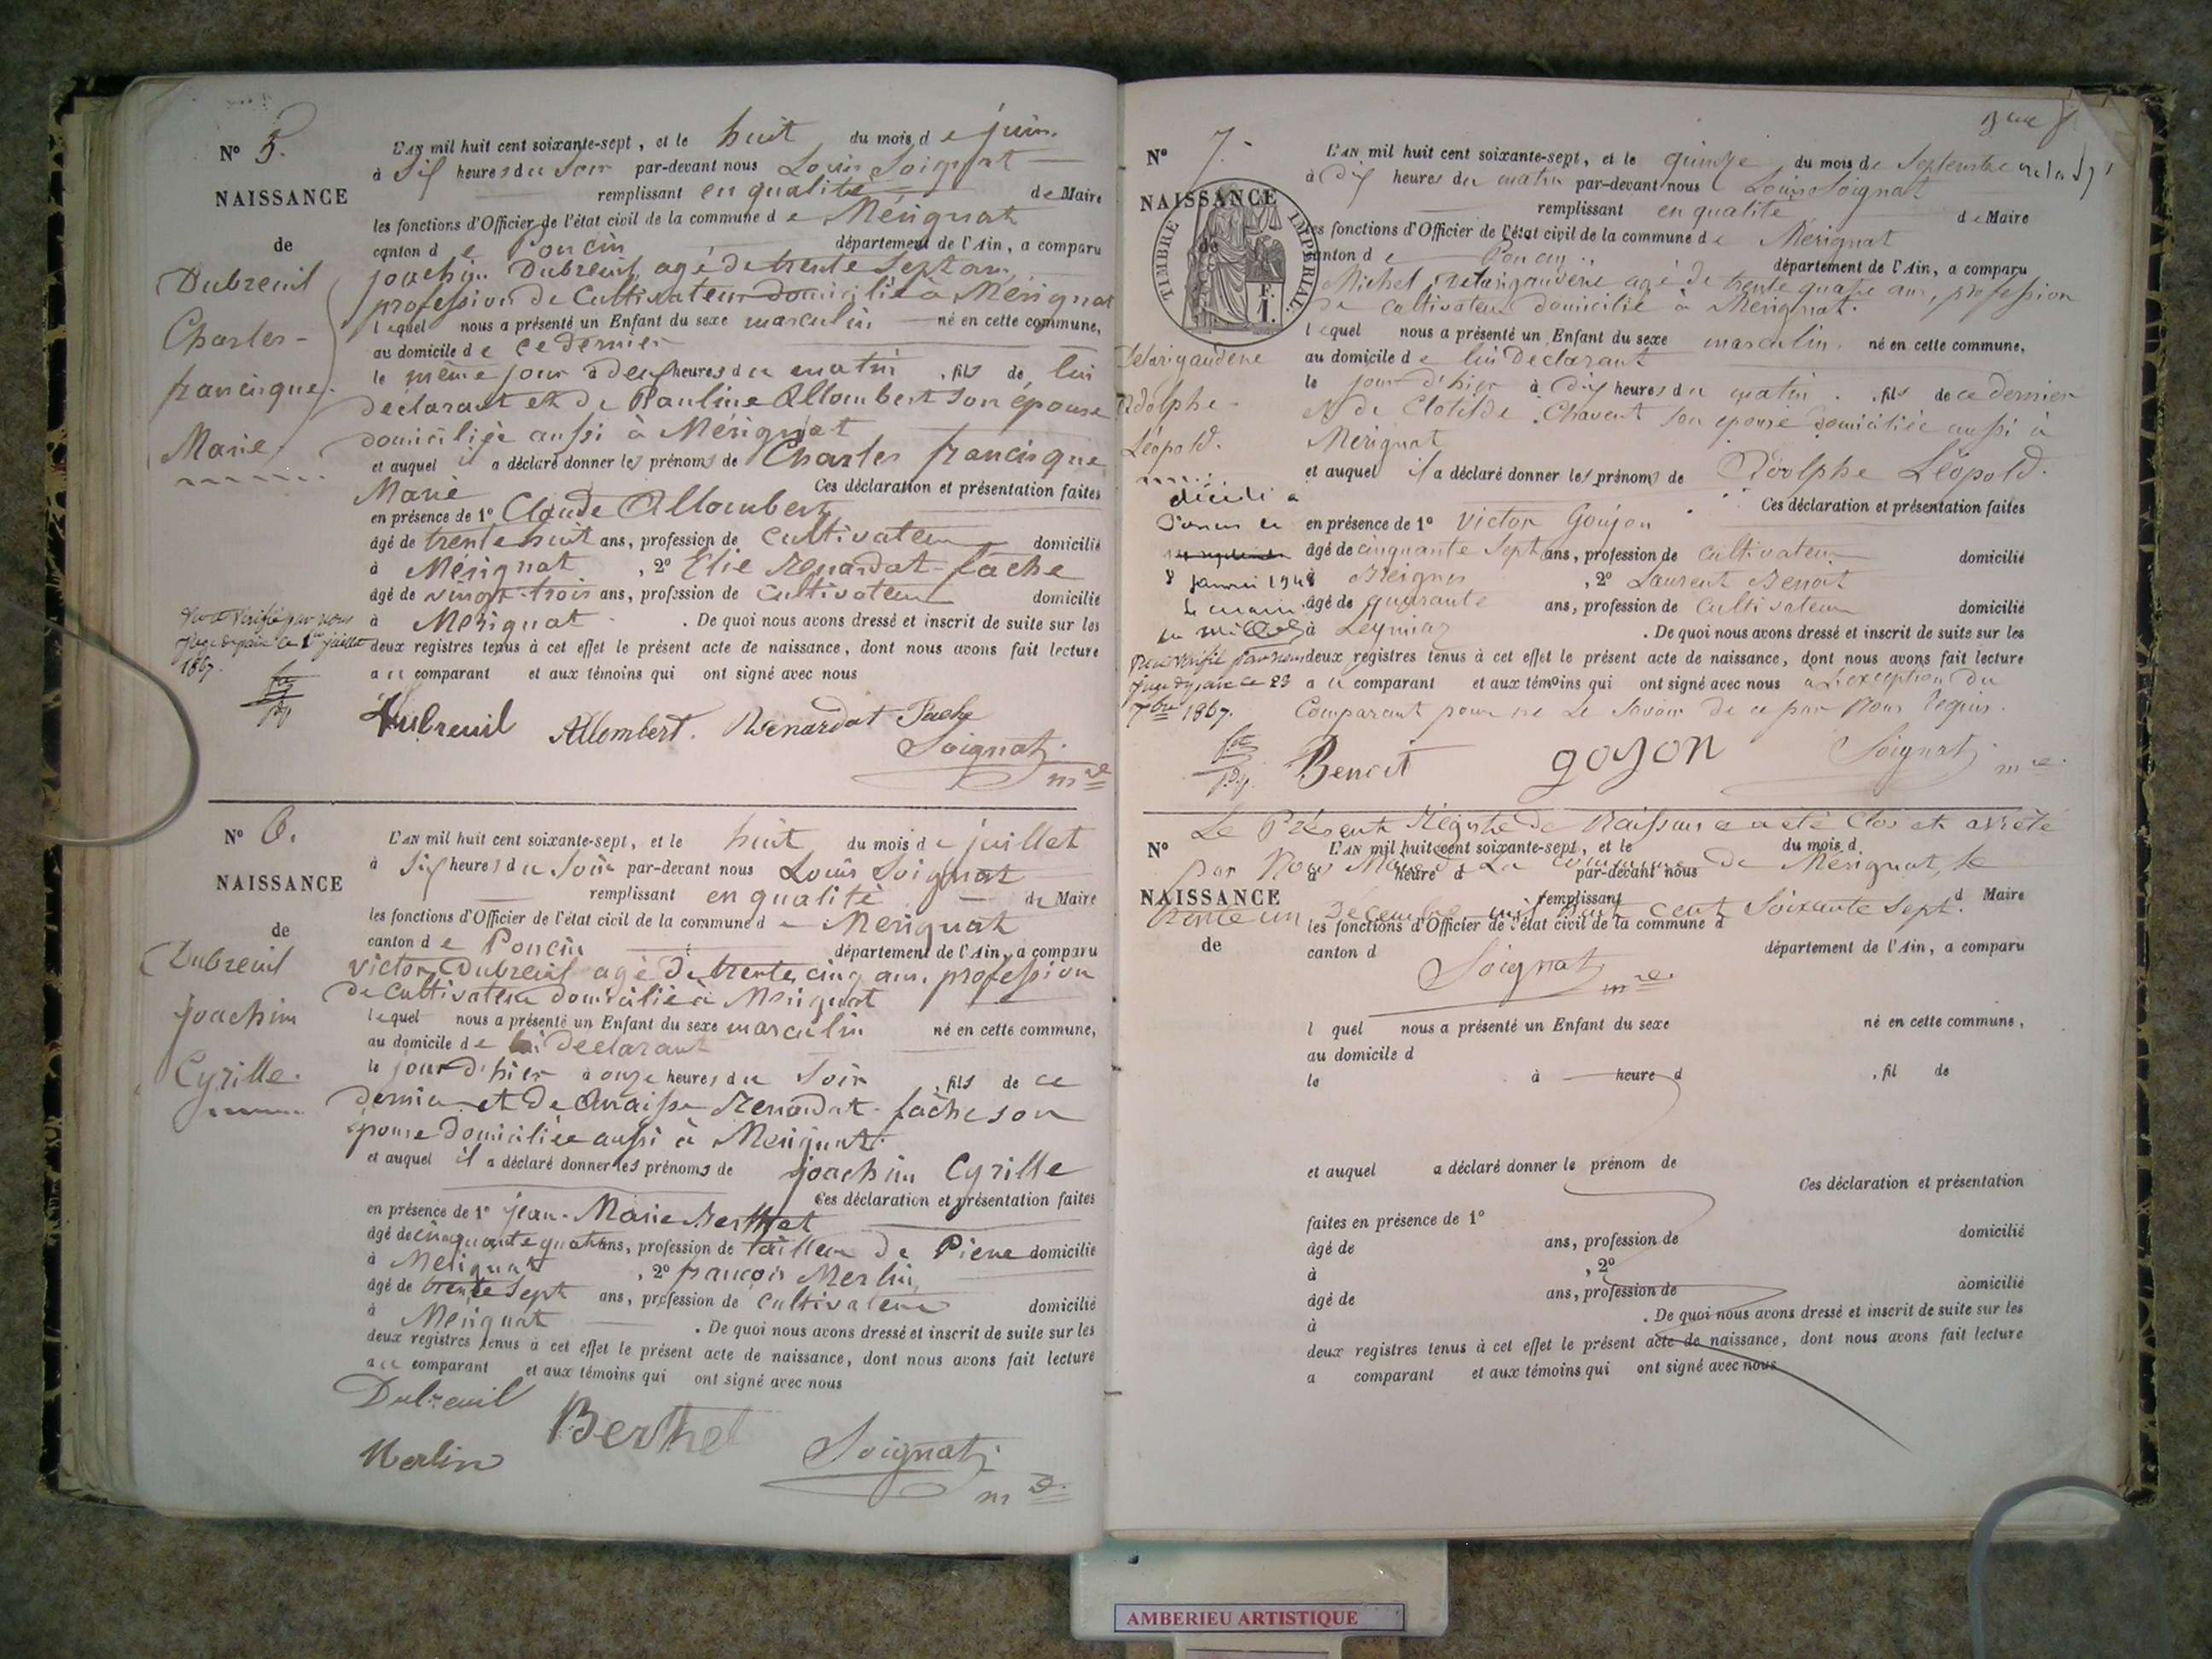 N° 5.
NAISSANCE
de
Dubreuil
Charles-
francisque
Marie
L'AN mil huit cent soixante-sept, et le huit du mois de juin
à Six heures du soir par-devant nous Louis Soignat
remplissant en qualité de Maire
les fonctions d'Officier de l'état civil de la commune de Mérignat
canton de Poncin département de l'Ain, a comparu
joachim Dubreuil agé de trente Sept ans
profession de Cultivateur domicilié à Mérignat
lequel nous a présenté un Enfant du sexe masculin né en cette commune,
au domicile de ce dernier
le même jour à deux heures du matin, fils de lui
déclarant et de Pauline Allombert son épouse
domiciliée aussi à Mérignat
et auquel il a déclaré donner les prénoms de Charles francisque
Marie Ces déclaration et présentation faites
en présence de 1° Claude Allombert
âgé de trente huit ans, profession de Cultivateur domicilié
à Mérignat, 2° Elie Renardat-fache
âgé de vingt-trois ans, profession de Cultivateur domicilié
à Mérignat. De quoi nous avons dressé et inscrit de suite sur les
deux registres tenus à cet effet le présent acte de naissance, dont nous avons fait lecture
au comparant et aux témoins qui ont signé avec nous
Vu et Vérifié par nous
Juge de paix ce 1er juillet
1867.
Dubreuil Allombert. Renardat Fache
Soignat
mre
N° 6.
NAISSANCE
de
Dubreuil
joachim
Cyrille.
L'AN mil huit cent soixante-sept, et le huit du mois de juillet
à Six heures du Soir par-devant nous Louis Soignat
remplissant en qualité de Maire
les fonctions d'Officier de l'état civil de la commune de Mérignat
canton de Poncin département de l'Ain, a comparu
victor Dubreuil agé de trente cinq ans, profession
de cultivateur domicilié à Mérignat
lequel nous a présenté un Enfant du sexe masculin né en cette commune,
au domicile de lui déclarant
le jour d'hier à onze heures du Soir, fils de ce
dernier et de Anaïse Renardat-fache son
épouse domiciliée aussi à Mérignat.
et auquel il a déclaré donner les prénoms de joachim Cyrille
Ces déclaration et présentation faites
en présence de 1° jean-Marie Berthet
âgé de cinquante quatre ans, profession de tailleur de Pierre domicilié
à Mérignat, 2° françois Merlin
âgé de trente Sept ans, profession de Cultivateur domicilié
à Mérignat. De quoi nous avons dressé et inscrit de suite sur les
deux registres tenus à cet effet le présent acte de naissance, dont nous avons fait lecture
au comparant et aux témoins qui ont signé avec nous
Dubreuil
Berthet
Merlin
Soignat
mre
N° 7.
NAISSANCE
de
TIMBRE IMPÉRIAL
F.
1.
Adolphe-
Léopold.
décédé à
8 janvier 1948
Le maire
Vu et Vérifié par nous
Juge de paix ce 23
7bre 1867.
L'AN mil huit cent soixante-sept, et le quinze du mois de Septembre
à Dix heures du matin par-devant nous Louis Soignat
remplissant en qualité de Maire
les fonctions d'Officier de l'état civil de la commune de Mérignat
canton de Poncin département de l'Ain, a comparu
Michel agé de trente quatre ans, profession
de cultivateur domicilié à Mérignat.
lequel nous a présenté un Enfant du sexe masculin né en cette commune,
au domicile de lui Déclarant
le jour d'hier à Dix heures du matin, fils de ce dernier
et de Clotilde Chavent son épouse domiciliée aussi à
Mérignat
et auquel il a déclaré donner les prénoms de Adolphe Léopold.
Ces déclaration et présentation faites
en présence de 1° Victor Goujon
âgé de cinquante Sept ans, profession de cultivateur domicilié
à, 2° Laurent Benoit
âgé de quarante ans, profession de Cultivateur domicilié
à Leymiaz. De quoi nous avons dressé et inscrit de suite sur les
deux registres tenus à cet effet le présent acte de naissance, dont nous avons fait lecture
au comparant et aux témoins qui ont signé avec nous à l'exception du
Comparant pour ne le Savoir de ce par Nous requis.
Benoit goyon Soignat mre
Le Présent Régistre de Naissance a été Clos et arrêté
par Nous Maire de La commune de Mérignat, le
trente un Décembre mil huit cent Soixante Sept.
Soignat mre
N°
NAISSANCE
de
L'AN mil huit cent soixante-sept, et le du mois d
à heure d par-devant nous
remplissant d Maire
les fonctions d'Officier de l'état civil de la commune d
canton d département de l'Ain, a comparu
l quel nous a présenté un Enfant du sexe né en cette commune,
au domicile d
le à heure d, fil de
et auquel a déclaré donner le prénom de
Ces déclaration et présentation
faites en présence de 1°
âgé de ans, profession de domicilié
à, 2°
âgé de ans, profession de domicilié
à. De quoi nous avons dressé et inscrit de suite sur les
deux registres tenus à cet effet le présent acte de naissance, dont nous avons fait lecture
a comparant et aux témoins qui ont signé avec nous
AMBERIEU ARTISTIQUE